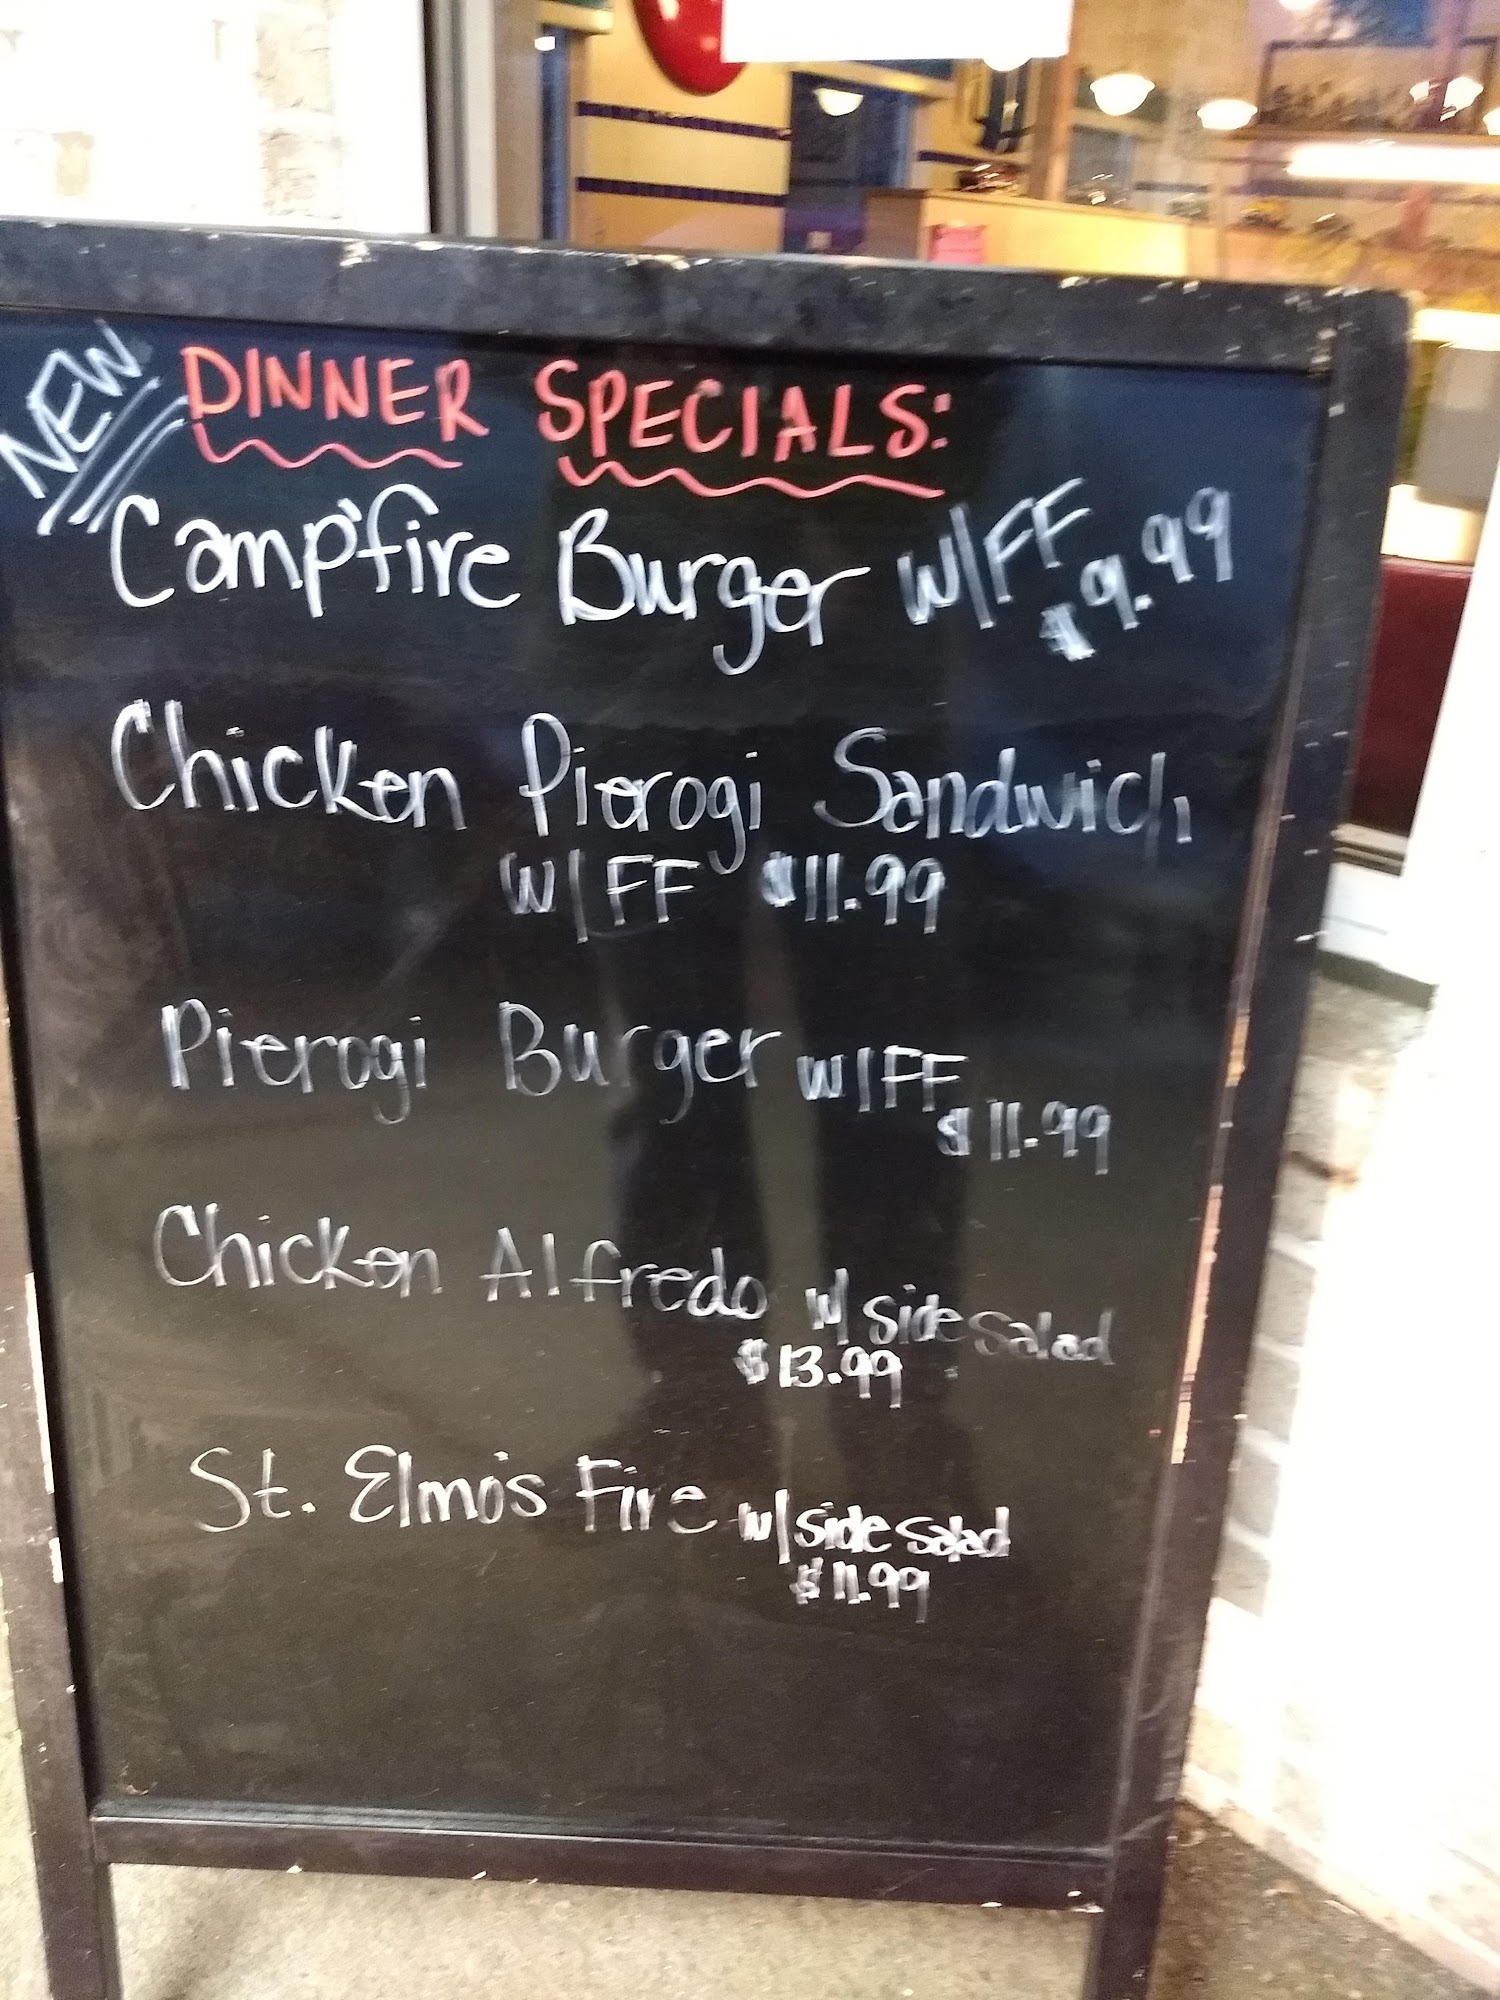 NEW DINNER SPECIALS:
Campfire Burger W/FF
$9.99
Chicken Pierogi Sandwich
W/FF $11.99
Pierogi Burger W/FF
$11.99
Chicken Alfredo w/ side salad
$13.99
St. Elmo's Fire w/side salad
$11.99